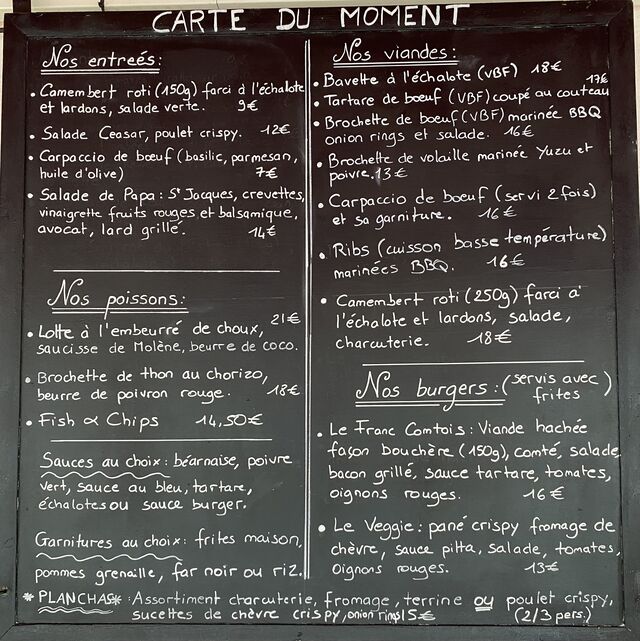 CARTE DU MOMENT
Nos entreés:
• Camembert roti (150g) farci à l'échalote
et lardons, salade verte. 9€
• Salade Ceasar, poulet crispy. 12€
• Carpaccio de bœuf (basilic, parmesan,
huile d'olive) 7€
• Salade de Papa: St Jacques, crevettes,
vinaigrette fruits rouges et balsamique,
avocat, lard grillé. 14€
Nos poissons:
• Lotte à l'embeurré de choux, 21€
saucisse de Molène, beurre de coco.
• Brochette de thon au chorizo,
beurre de poivron rouge. 18€
• Fish & Chips 14,50€
Sauces au choix: béarnaise, poivre
vert, sauce au bleu, tartare,
échalotes ou sauce burger.
Garnitures au choix: frites maison,
pommes grenaille, far noir ou riz.
Nos viandes:
• Bavette à l'échalote (VBF) 18€
• Tartare de bœuf (VBF) coupé au couteau 17€
• Brochette de bœuf (VBF) marinée BBQ
onion rings et salade. 16€
• Brochette de volaille marinée Yuzu et
poivre. 13€
• Carpaccio de bœuf (servi 2 fois)
et sa garniture. 16€
• Ribs (cuisson basse température)
marinées BBQ. 16€
• Camembert roti (250g) farci à
l'échalote et lardons, salade,
charcuterie. 18€
Nos burgers: (servis avec
frites)
• Le Franc Comtois: Viande hachée
façon bouchère (150g), comté, salade,
bacon grillé, sauce tartare, tomates,
oignons rouges. 16€
• Le Veggie: pané crispy fromage de
chèvre, sauce pitta, salade, tomates,
oignons rouges. 13€
*PLANCHAS*: Assortiment charcuterie, fromage, terrine ou poulet crispy,
sucettes de chèvre crispy, onion rings 15€ (2/3 pers.)